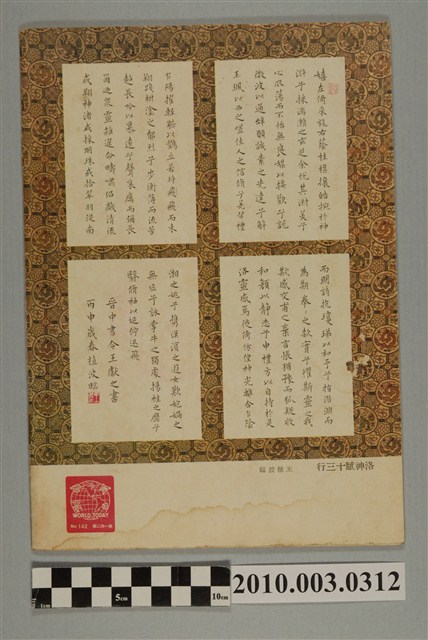 嬉左倚采旄右蔭桂旗攘皓捥於神
滸兮採湍瀨之玄芝余忱其淑美兮
心振蕩而不怡無良媒以接歡兮託
微波以通辭願誠素之先達兮解
玉珮以要之嗟佳人之信脩兮羌習禮
而明詩抗瓊珶以和予兮指潛淵而
為期執拳之款實兮懼斯靈之我
欺感交甫之棄言悵猶豫而狐疑收
和顏以靜志兮申禮防以自持於是
洛靈感焉徙倚仿偟神光離合乍陰
乍陽擢輕軀以鶴立若將飛而未
翔踐椒塗之郁烈兮步衡薄而流芳
超長吟以慕遠兮聲哀厲而彌長
爾乃衆靈雜遝命疇嘯侶或戲清流
或翔神渚或採明珠或拾翠羽從南
湘之二姚兮攜漢濱之遊女歎匏媧之
無匹兮詠牽牛之獨處揚袿之靡兮
翳脩袖以延佇迅飛
晉中書令王獻之書
丙申歲春
洛神賦十三行
WORLD TODAY
No. 102
1cm 5cm 10cm
2010.003.0312